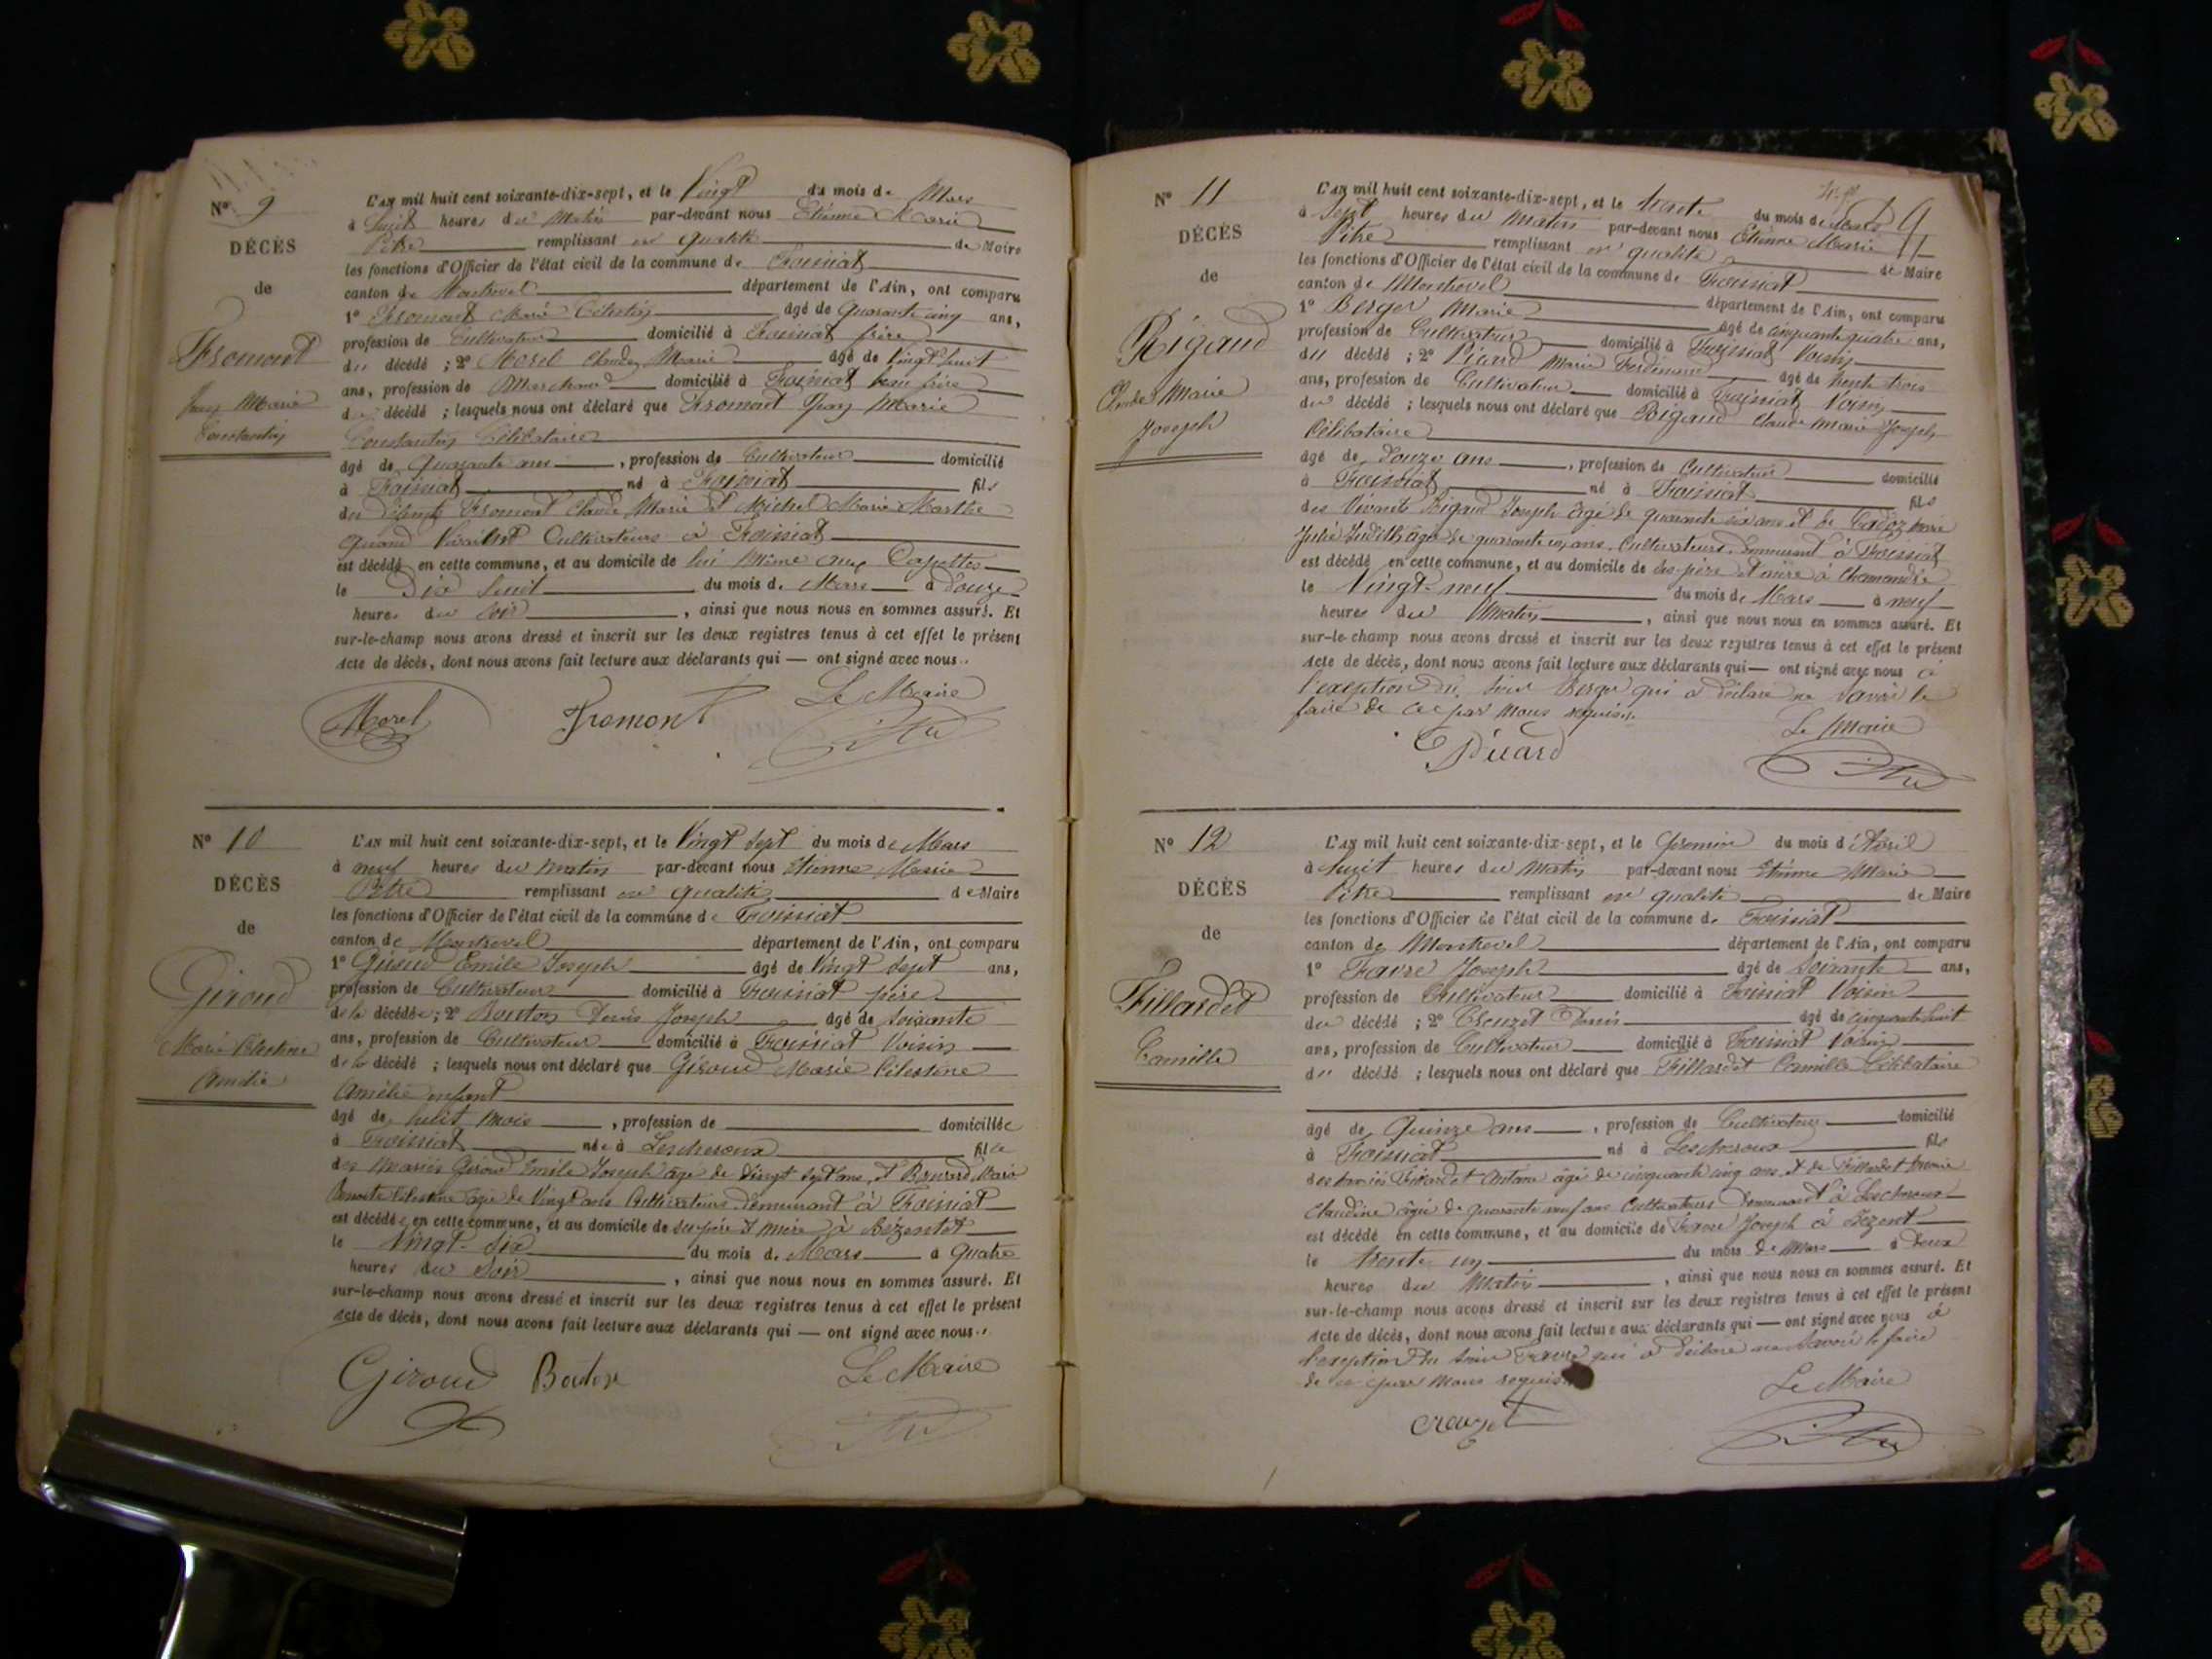 N° 9
DÉCÈS
de
Fromont
Jean Marie
Constantin
L'AN mil huit cent soixante-dix-sept, et le Vingt du mois de Mars
à huit heures du Matin par-devant nous Etienne Marie
Pitre remplissant en qualité de Maire
les fonctions d'Officier de l'état civil de la commune de Foissiat
canton de Montrevel département de l'Ain, ont comparu
1° Fromont Marie Célestin âgé de Quarante cinq ans,
profession de Cultivateur domicilié à Foissiat frère
du décédé ; 2° Morel Claude Marie âgé de Vingt huit
ans, profession de Marchand domicilié à Foissiat beau frère
du décédé ; lesquels nous ont déclaré que Fromont Jean Marie
Constantin Célibataire
âgé de Quarante ans, profession de Cultivateur domicilié
à Foissiat né à Foissiat fils
des défunts Fromont Claude Marie et Michel Marie Marthe
quand Vivaient Cultivateurs à Foissiat
est décédé en cette commune, et au domicile de lui même aux
le Dix huit du mois de Mars à Douze
heures du soir, ainsi que nous nous en sommes assuré. Et
sur-le-champ nous avons dressé et inscrit sur les deux registres tenus à cet effet le présent
Acte de décès, dont nous avons fait lecture aux déclarants qui — ont signé avec nous.
Le Maire
Morel Fromont Pitre
N° 10
DÉCÈS
de
Giroud
Marie Célestine
Amélie
L'AN mil huit cent soixante-dix-sept, et le Vingt sept du mois de Mars
à neuf heures du matin par-devant nous Etienne Marie
Pitre remplissant en qualité de Maire
les fonctions d'Officier de l'état civil de la commune de Foissiat
canton de Montrevel département de l'Ain, ont comparu
1° Giroud Emile Joseph âgé de Vingt sept ans,
profession de Cultivateur domicilié à Foissiat père
de la décédée ; 2° Bouton Denis Joseph âgé de soixante
ans, profession de Cultivateur domicilié à Foissiat Voisin
de la décédé ; lesquels nous ont déclaré que Giroud Marie Célestine
Amélie enfant
âgé de huit mois, profession de domiciliée
à Foissiat née à Lescheroux fille
des mariés Giroud Emile Joseph âgé de Vingt sept ans, et Marie
Benoite Célestine âgée de Vingt ans Cultivateurs demeurant à Foissiat
est décédée en cette commune, et au domicile de ses père et mère à Bézentet
le Vingt-six du mois de Mars à Quatre
heures du Soir, ainsi que nous nous en sommes assuré. Et
sur-le-champ nous avons dressé et inscrit sur les deux registres tenus à cet effet le présent
Acte de décès, dont nous avons fait lecture aux déclarants qui — ont signé avec nous.
Giroud Bouton Le Maire
Pitre
N° 11
DÉCÈS
de
Rigaud
Claude Marie
Joseph
L'AN mil huit cent soixante-dix-sept, et le trente du mois de Mars
à Sept heures du matin par-devant nous Etienne Marie
Pitre remplissant en qualité de Maire
les fonctions d'Officier de l'état civil de la commune de Foissiat
canton de Montrevel département de l'Ain, ont comparu
1° Berger Marie âgé de cinquante quatre ans,
profession de Cultivateur domicilié à Foissiat Voisin
du décédé ; 2° Picard Marie Ferdinand âgé de trente trois
ans, profession de Cultivateur domicilié à Foissiat Voisin
du décédé ; lesquels nous ont déclaré que Rigaud Claude Marie Joseph
Célibataire
âgé de Douze ans, profession de Cultivateur domicilié
à Foissiat né à Foissiat fils
des Vivants Rigaud Joseph âgé de quarante six ans et de Marie
Julie Judith âgée de quarante cinq ans, Cultivateurs demeurant à Foissiat
est décédé en cette commune, et au domicile de ses père et mère à Chamandre
le Vingt-neuf du mois de Mars à neuf
heures du Matin, ainsi que nous nous en sommes assuré. Et
sur-le-champ nous avons dressé et inscrit sur les deux registres tenus à cet effet le présent
Acte de décès, dont nous avons fait lecture aux déclarants qui — ont signé avec nous à
l'exception du sieur Berger qui a déclaré ne savoir le
faire de ce par nous requis.
Le Maire
Picard Pitre
N° 12
DÉCÈS
de
Fillardet
Camille
L'AN mil huit cent soixante-dix-sept, et le premier du mois d'Avril
à huit heures du Matin par-devant nous Etienne Marie
Pitre remplissant en qualité de Maire
les fonctions d'Officier de l'état civil de la commune de Foissiat
canton de Montrevel département de l'Ain, ont comparu
1° Favre Joseph âgé de soixante ans,
profession de Cultivateur domicilié à Foissiat Voisin
du décédé ; 2° Creuzet Denis âgé de cinquante huit
ans, profession de Cultivateur domicilié à Foissiat Voisin
du décédé ; lesquels nous ont déclaré que Fillardet Camille Célibataire
âgé de Quinze ans, profession de Cultivateur domicilié
à Foissiat né à Lescheroux fils
des mariés Fillardet Antoine âgé de cinquante cinq ans et de Fillardet
Claudine âgée de quarante neuf ans Cultivateurs demeurant à Lescheroux
est décédé en cette commune, et au domicile de Favre Joseph à Bezentet
le trente un du mois de Mars à Deux
heures du Matin, ainsi que nous nous en sommes assuré. Et
sur-le-champ nous avons dressé et inscrit sur les deux registres tenus à cet effet le présent
Acte de décès, dont nous avons fait lecture aux déclarants qui — ont signé avec nous à
l'exception du sieur Favre qui a déclaré ne savoir le faire
de ce par nous requis
Le Maire
Creuzet Pitre